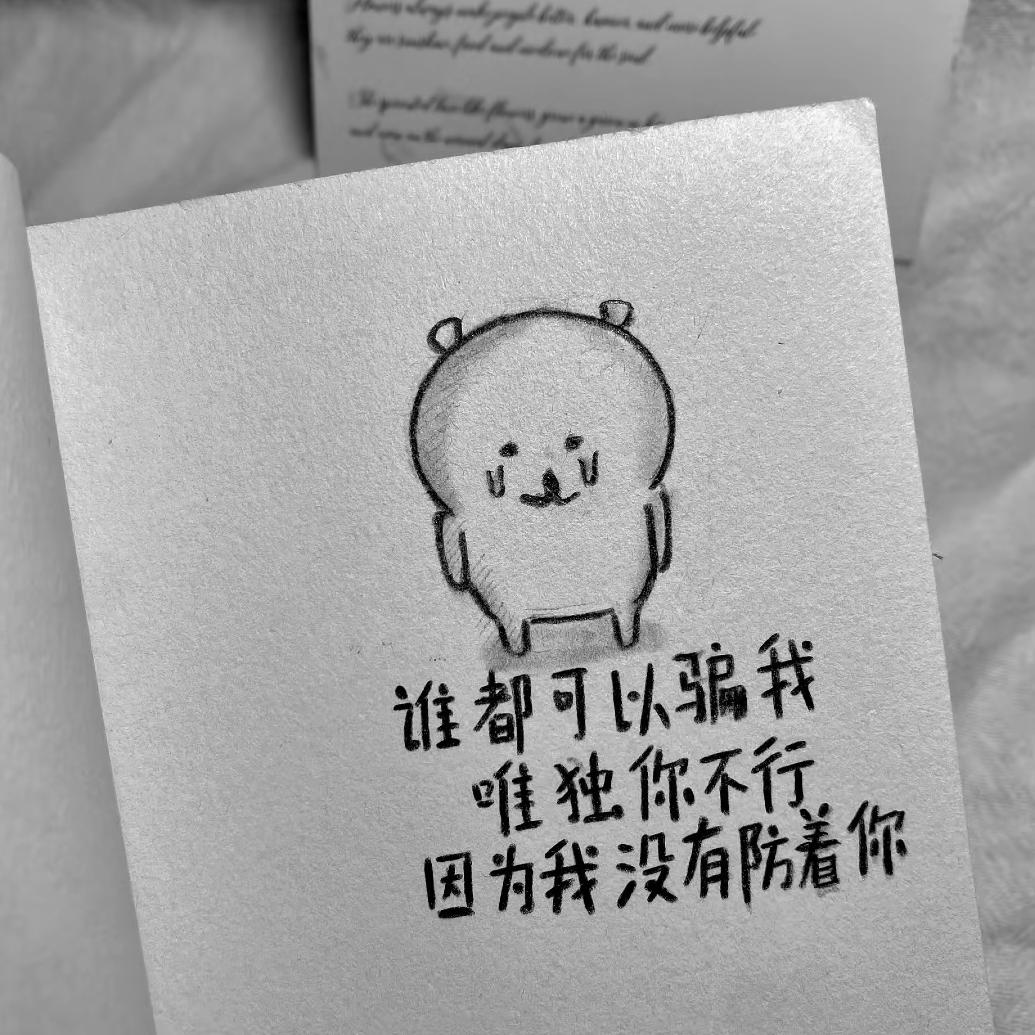 always better, and more helpful
they are food and for the soul
flowers,
and on the
谁都可以骗我
唯独你不行
因为我没有防着你